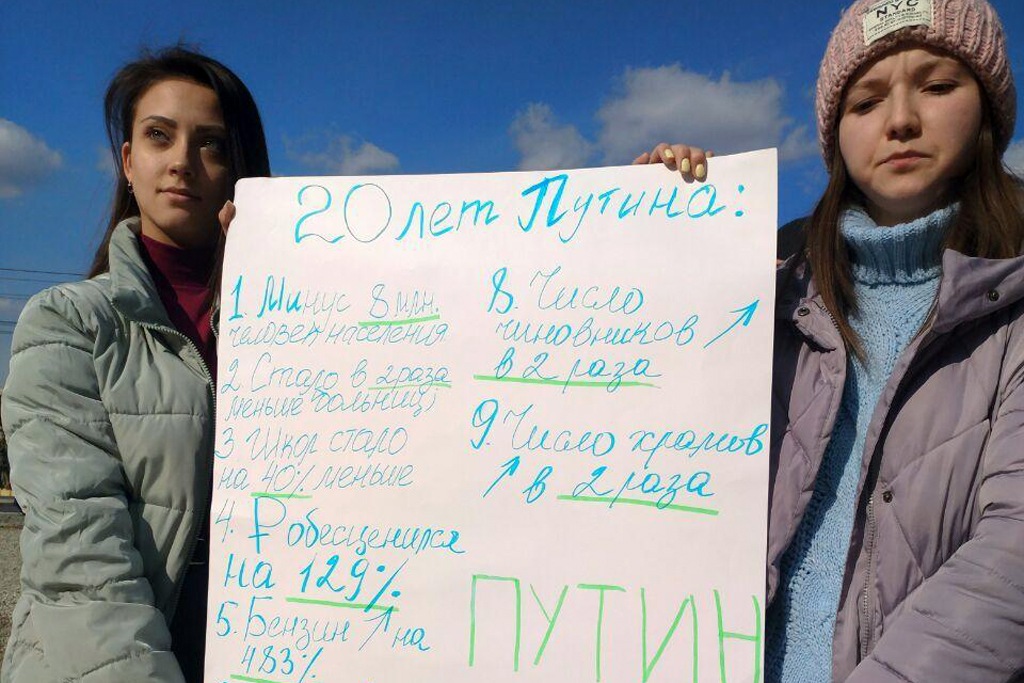 NYC
STANDARD
20 лет Путина:
1. Минус 8 млн.
человек населения
2 Стало в 2 раза
меньше больниц;
3 Школ стало
на 40% меньше
4. ₽ обесценился
на 129%
5. Бензин ↗ на
483%
8. Число
чиновников ↗
в 2 раза
9. Число храмов
↗ в 2 раза
ПУТИН